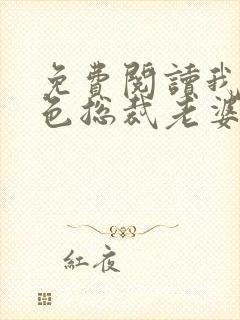 免費閱讀我
色总裁老婆
紅夜